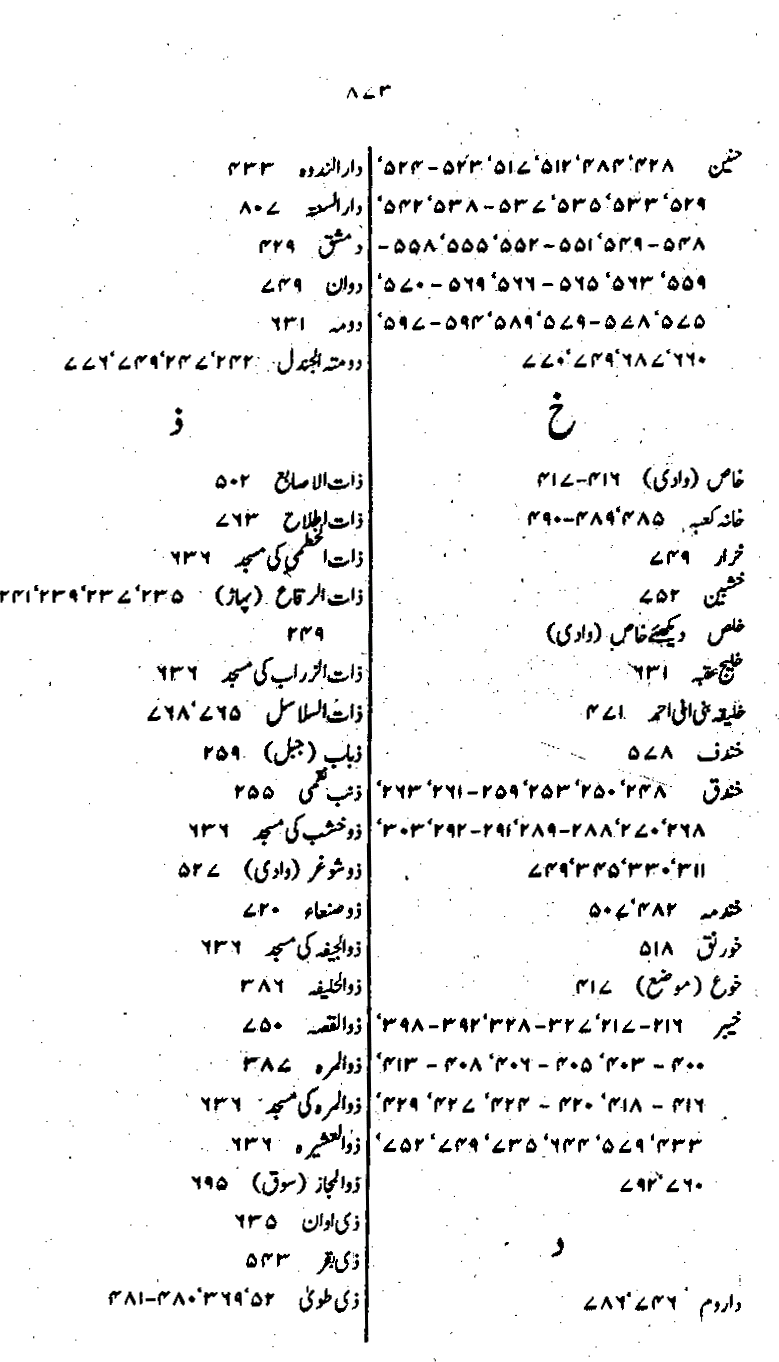 ۸۷۳
حنین ۴۲۸‘۴۸۴‘۵۱۲‘۵۱۷‘۵۲۳-۵۲۴‘
۵۲۹‘۵۳۳‘۵۳۵‘۵۳۷-۵۳۸‘۵۴۲‘
۵۴۸-۵۴۹‘۵۵۱-۵۵۲‘۵۵۵‘۵۵۸-
۵۵۹‘۵۶۳‘۵۶۵-۵۶۶‘۵۶۹-۵۷۰‘
۵۷۵‘۵۷۸-۵۷۹‘۵۸۹‘۵۹۴-۵۹۷‘
۶۶۰‘۶۸۷‘۷۴۹‘۷۷۰
خ
خاص (وادی) ۴۱۶-۴۱۷
خانہ کعبہ ۴۸۵‘۴۸۹-۴۹۰
خرار ۷۴۹
خشین ۷۵۲
خلص دیکھئے خاص (وادی)
خلیج عقبہ ۶۳۱
خلیقہ بنی ابی احمد ۴۷۱
خندف ۵۷۸
خندق ۲۴۸‘۲۵۰‘۲۵۳‘۲۵۹-۲۶۱‘۲۶۳‘
۲۶۸‘۲۷۰‘۲۸۸-۲۸۹‘۲۹۱-۲۹۲‘۳۰۳‘
۳۱۱‘۳۳۰‘۳۴۵‘۷۴۹
خندمہ ۴۸۲‘۵۰۷
خورنق ۵۱۸
خوع (موضع) ۴۱۷
خیبر ۲۱۶-۲۱۷‘۳۲۷-۳۲۸‘۳۹۲-۳۹۸‘
۴۰۰-۴۰۳‘۴۰۵-۴۰۶‘۴۰۸-۴۱۳‘
۴۱۶-۴۱۸‘۴۲۰-۴۲۴‘۴۲۷‘۴۲۹‘
۴۳۳‘۵۷۹‘۶۴۴‘۷۳۵‘۷۴۹‘۷۵۲‘
۷۶۰‘۷۹۲
د
داروم ۷۴۶‘۷۸۶
دارالندوہ ۴۳۳
دارالستہ ۸۰۷
دمشق ۴۲۹
دوان ۷۴۹
دومہ ۶۳۱
دومتہ الجندل ۲۴۲‘۲۴۷‘۷۴۹‘۷۷۶
ذ
ذات الاصابع ۵۰۲
ذات اطلاح ۷۶۳
ذات الخطمی کی مسجد ۶۳۶
ذات الرقاع (پہاڑ) ۲۳۵‘۲۳۷‘۲۳۹‘۲۴۱
۲۴۹
ذات الزراب کی مسجد ۶۳۶
ذات السلاسل ۷۶۵‘۷۶۸
ذباب (جبل) ۲۵۹
ذنب نقمی ۲۵۵
ذو خشب کی مسجد ۶۳۶
ذو شوغر (وادی) ۵۲۷
ذو صنعاء ۷۲۰
ذوالجیفہ کی مسجد ۶۳۶
ذوالحلیفہ ۳۸۶
ذوالقصہ ۷۵۰
ذوالمرہ ۳۸۷
ذوالمرہ کی مسجد ۶۳۶
ذوالعشیرہ ۶۳۶
ذوالمجاز (سوق) ۶۹۵
ذی اوان ۶۳۵
ذی بقر ۵۴۳
ذی طویٰ ۵۲‘۳۶۹‘۴۸۰-۴۸۱